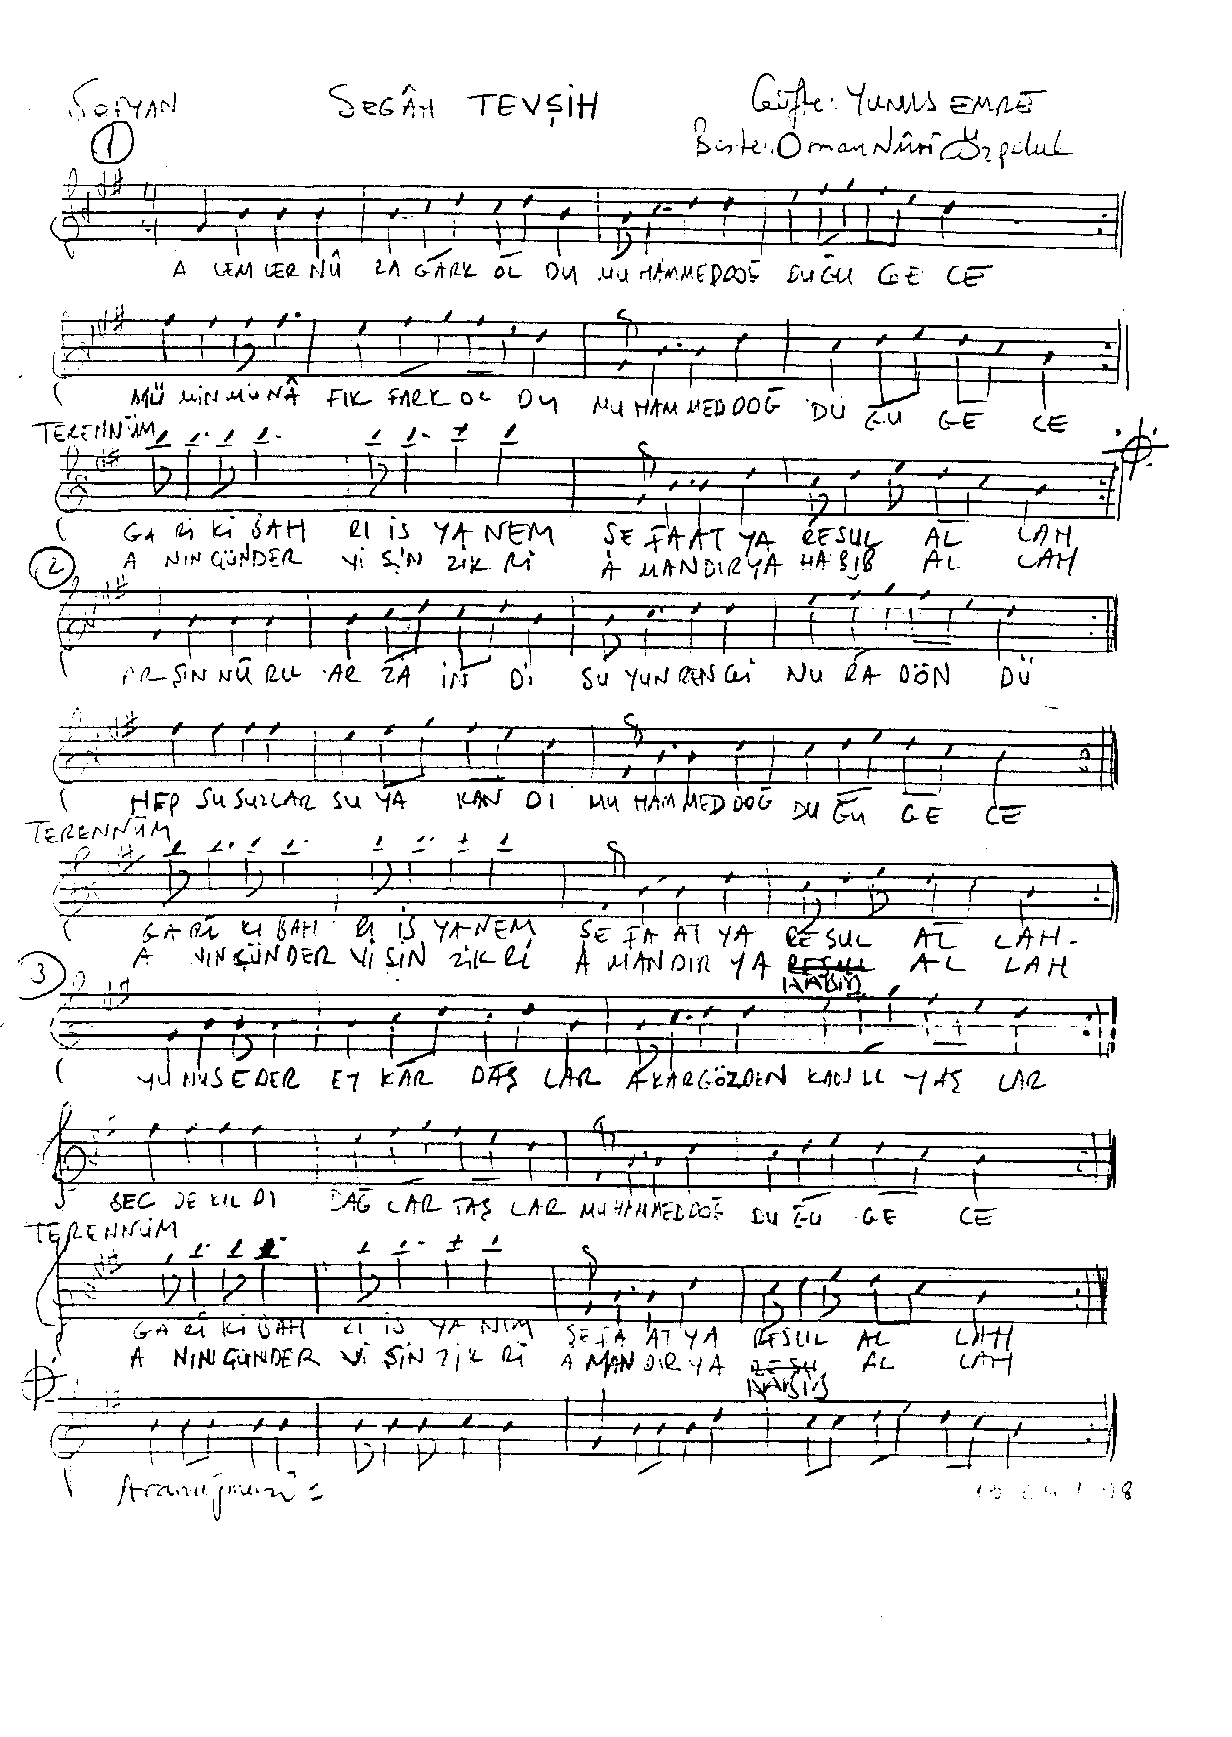 SOFYAN SEGÂH TEVŞİH Güfte: YUNUS EMRE
① Beste: Osman Nûri Özpekel
A LEM LER NÛ RA GARK OL DU MU HAM MED DOĞ DU ĞU GE CE
MÜ MİN MÜ NÂ FIK FARK OL DU MU HAM MED DOĞ DU ĞU GE CE
TERENNÜM
GA Rİ Kİ BAH RI İS YA NEM ŞE FA AT YA RESUL AL LAH
A NIN GÜNDER Vİ ŞİN ZİK Rİ A MANDIR YA HABİB AL LAH
②
AR ŞIN NÛ RU AR ZA İN Dİ SU YUN RENGİ NU RA DÖN DÜ
HEP SU SUZLAR SU YA KAN DI MU HAM MED DOĞ DU ĞU GE CE
TERENNÜM
GA Rİ Kİ BAH RI İS YANEM ŞE FA AT YA RE SUL AL LAH
A NIN GÜNDER Vİ ŞİN ZİK Rİ A MANDIR YA RESUL AL LAH
HABİB
3
YU NUS E DER EY KAR DAŞ LAR A KAR GÖZDEN KAN LI YAŞ LAR
SEC DE KIL DI DAĞ LAR TAŞ LAR MU HAM MED DOĞ DU ĞU GE CE
TERENNÜM
GA Rİ Kİ BAH RI İS YA NIM ŞE FA AT YA RESUL AL LAH
A NIN GÜNDER Vİ ŞİN ZİK Rİ A MAN DIR YA RESU AL LAH
HABİB
Aranağmesi =